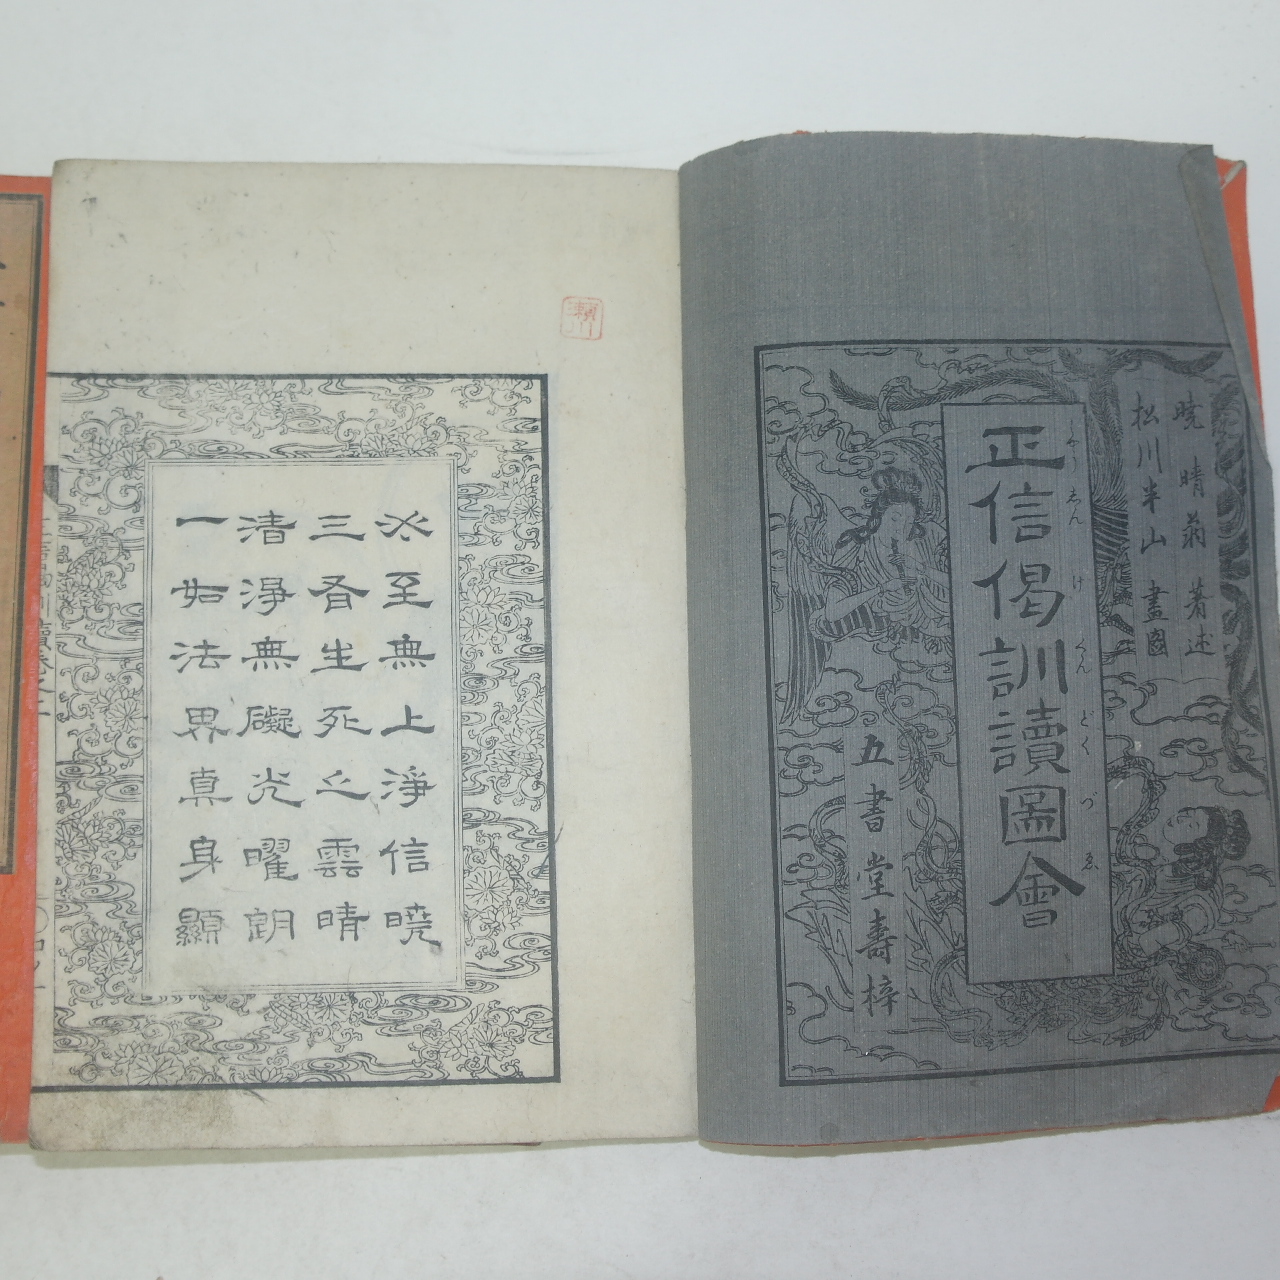 曉晴翁 著述
松川半山 畫圖
正信偈訓讀圖會
しやうしんけくんどくづゑ
五書堂壽梓
瀬川
必至無上淨信曉
三有生死之雲晴
清淨無礙光曜朗
一如法界真身顯